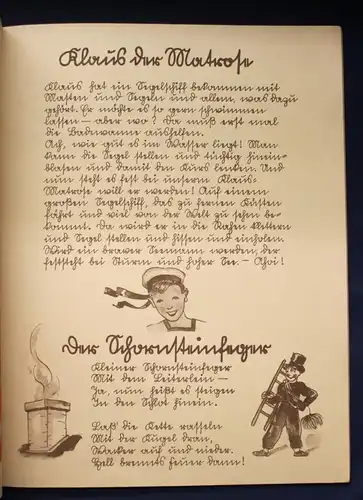 Klaus der Matrose
Klaus hat ein Segelschiff bekommen mit
Masten und Segeln und allem, was dazu
gehört. Er möchte es so gern schwimmen
lassen – aber wo? Da muß erst mal
die Badewanne aushelfen.
Ach, wie gut es im Wasser liegt! Man
kann die Segel stellen und tüchtig hinein-
blasen und damit den Kurs lenken. Und
nun steht es fest bei unserm Klaus:
Matrose will er werden! Auf einem
großen Segelschiff, das zu fernen Küsten
fährt und viel von der Welt zu sehn be-
kommt. Da wird er in die Rahen klettern
und Segel stellen und hissen und einholen.
Wird ein braver Seemann werden, der
feststeht bei Sturm und hoher See. – Ahoi!
Der Schornsteinfeger
Kleiner Schornsteinfeger
Mit dem Leiterlein –
Ja, nun heißt es steigen
In den Schlot hinein.
Laß die Kette rasseln
Mit der Kugel dran,
Wacker auf und nieder.
Hell brennts Feuer dann!